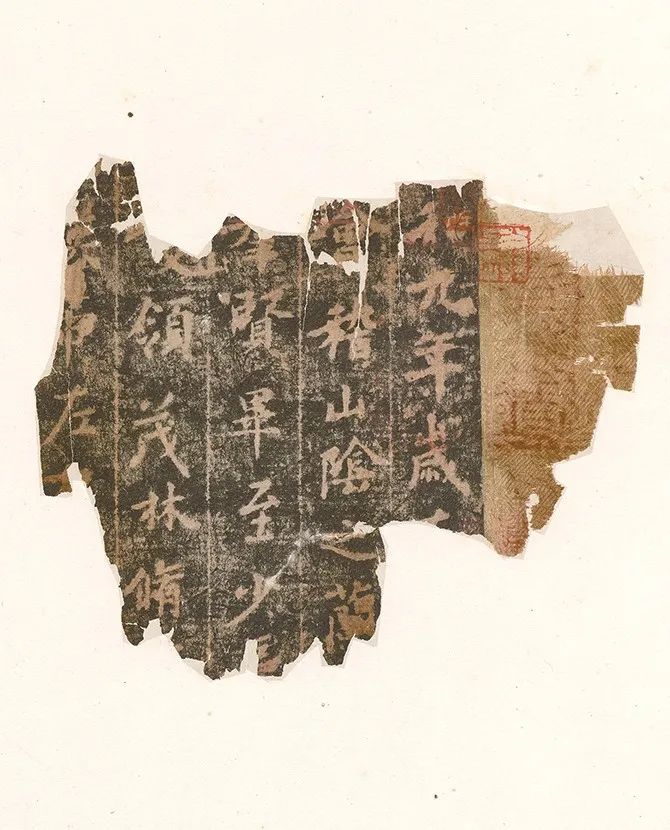 九年歲
會稽山陰之蘭
賢畢至少
領茂林脩
帶左